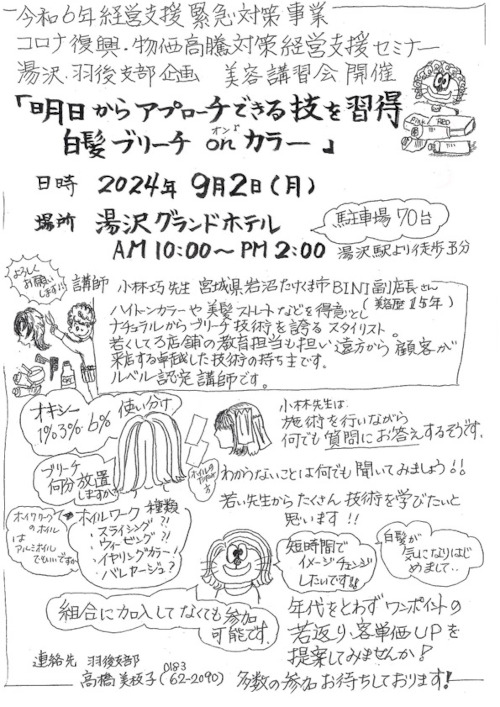 令和6年経営支援緊急対策事業
コロナ復興・物価高騰対策経営支援セミナー
湯沢・羽後支部企画 美容講習会開催
「明日からアプローチできる技を習得
白髪ブリーチonカラー」
オン
RED
日時 2024年9月2日(月)
場所 湯沢グランドホテル
AM10:00〜PM2:00
駐車場70台
湯沢駅より徒歩5分
よろしくお願いします!!
講師 小林巧先生 宮城県岩沼たけくま市BINI副店長さん
(美容歴15年)
ハイトーンカラーや美髪ストレートなどを得意とし
ナチュラルからブリーチ技術を誇るスタイリスト。
若くして3店舗の教育担当も担い遠方から顧客が
来店する卓越した技術の持ち主です。
ルベル認定講師です。
オキシー
1%3%6% 使い分け
小林先生は
施術を行いながら
何でも質問にお答えするそうです。
ブリーチ
何分放置
しますか
わからないことは何でも聞いてみましょう!!
若い先生からたくさん技術を学びたいと
思います!!
ホイルワークってホイルは
アルミホイルでもいいですか
ホイルワーク種類
・スライシング?!
・ウィービング?!
・イヤリングカラー!
・バレヤージュ?
短時間で
イメージチェンジ
したいです!!
白髪が
気になりはじめまして..
組合に加入してなくても参加
可能です。
年代をとわずワンポイントの
若返り、客単価UPを
提案してみませんか!
連絡先 羽後支部
高橋美枝子(0183 62-2090)
多数の参加お待ちしております!